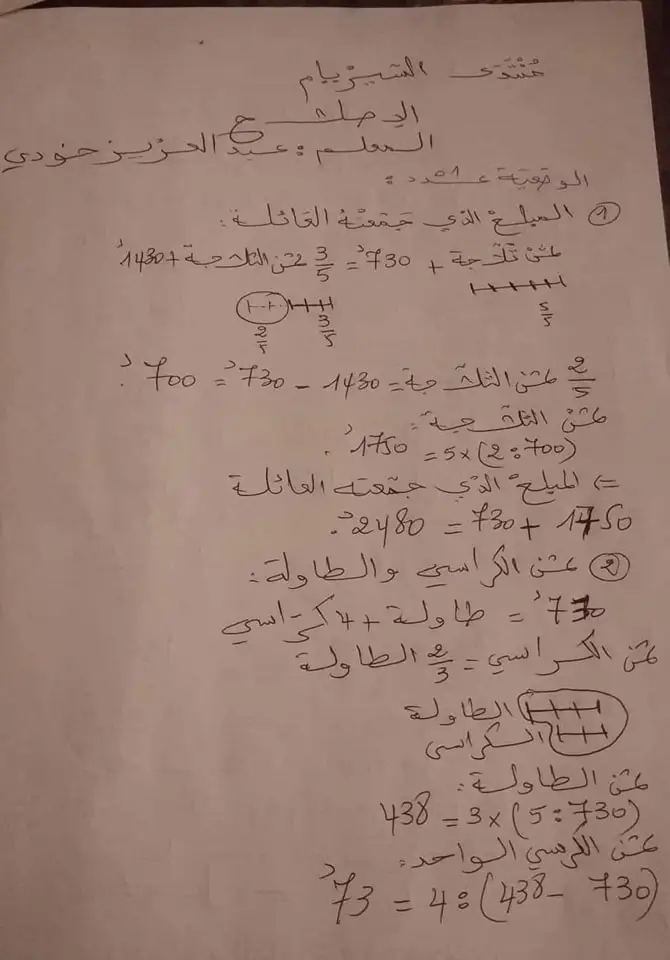 مُنْتَدَى التميز بيام
الإصلاح
المعلم : عبد العزيز خودي
الوضعية عدد 1 :
① المبلغ الذي جَمَعَتْهُ العائلة :
ثمن ثلّاجة + 730د = 3/5 ثمن الثلاجة + 1430د
5/5
2/5 3/5
2/5 ثمن الثلّاجة = 1430 - 730د = 700د.
ثمن الثلّاجة :
(700 : 2) × 5 = 1750د.
<= المبلغ الذي جمّعته العائلة
1750 + 730 = 2480د.
② ثمن الكراسي والطاولة :
730د = طاولة + 4 كراسي
ثمن الكراسي = 2/3 الطاولة
الطاولة
الكراسي
ثمن الطاولة :
(730 : 5) × 3 = 438
ثمن الكرسي الواحد :
(730 - 438) : 4 = 73د